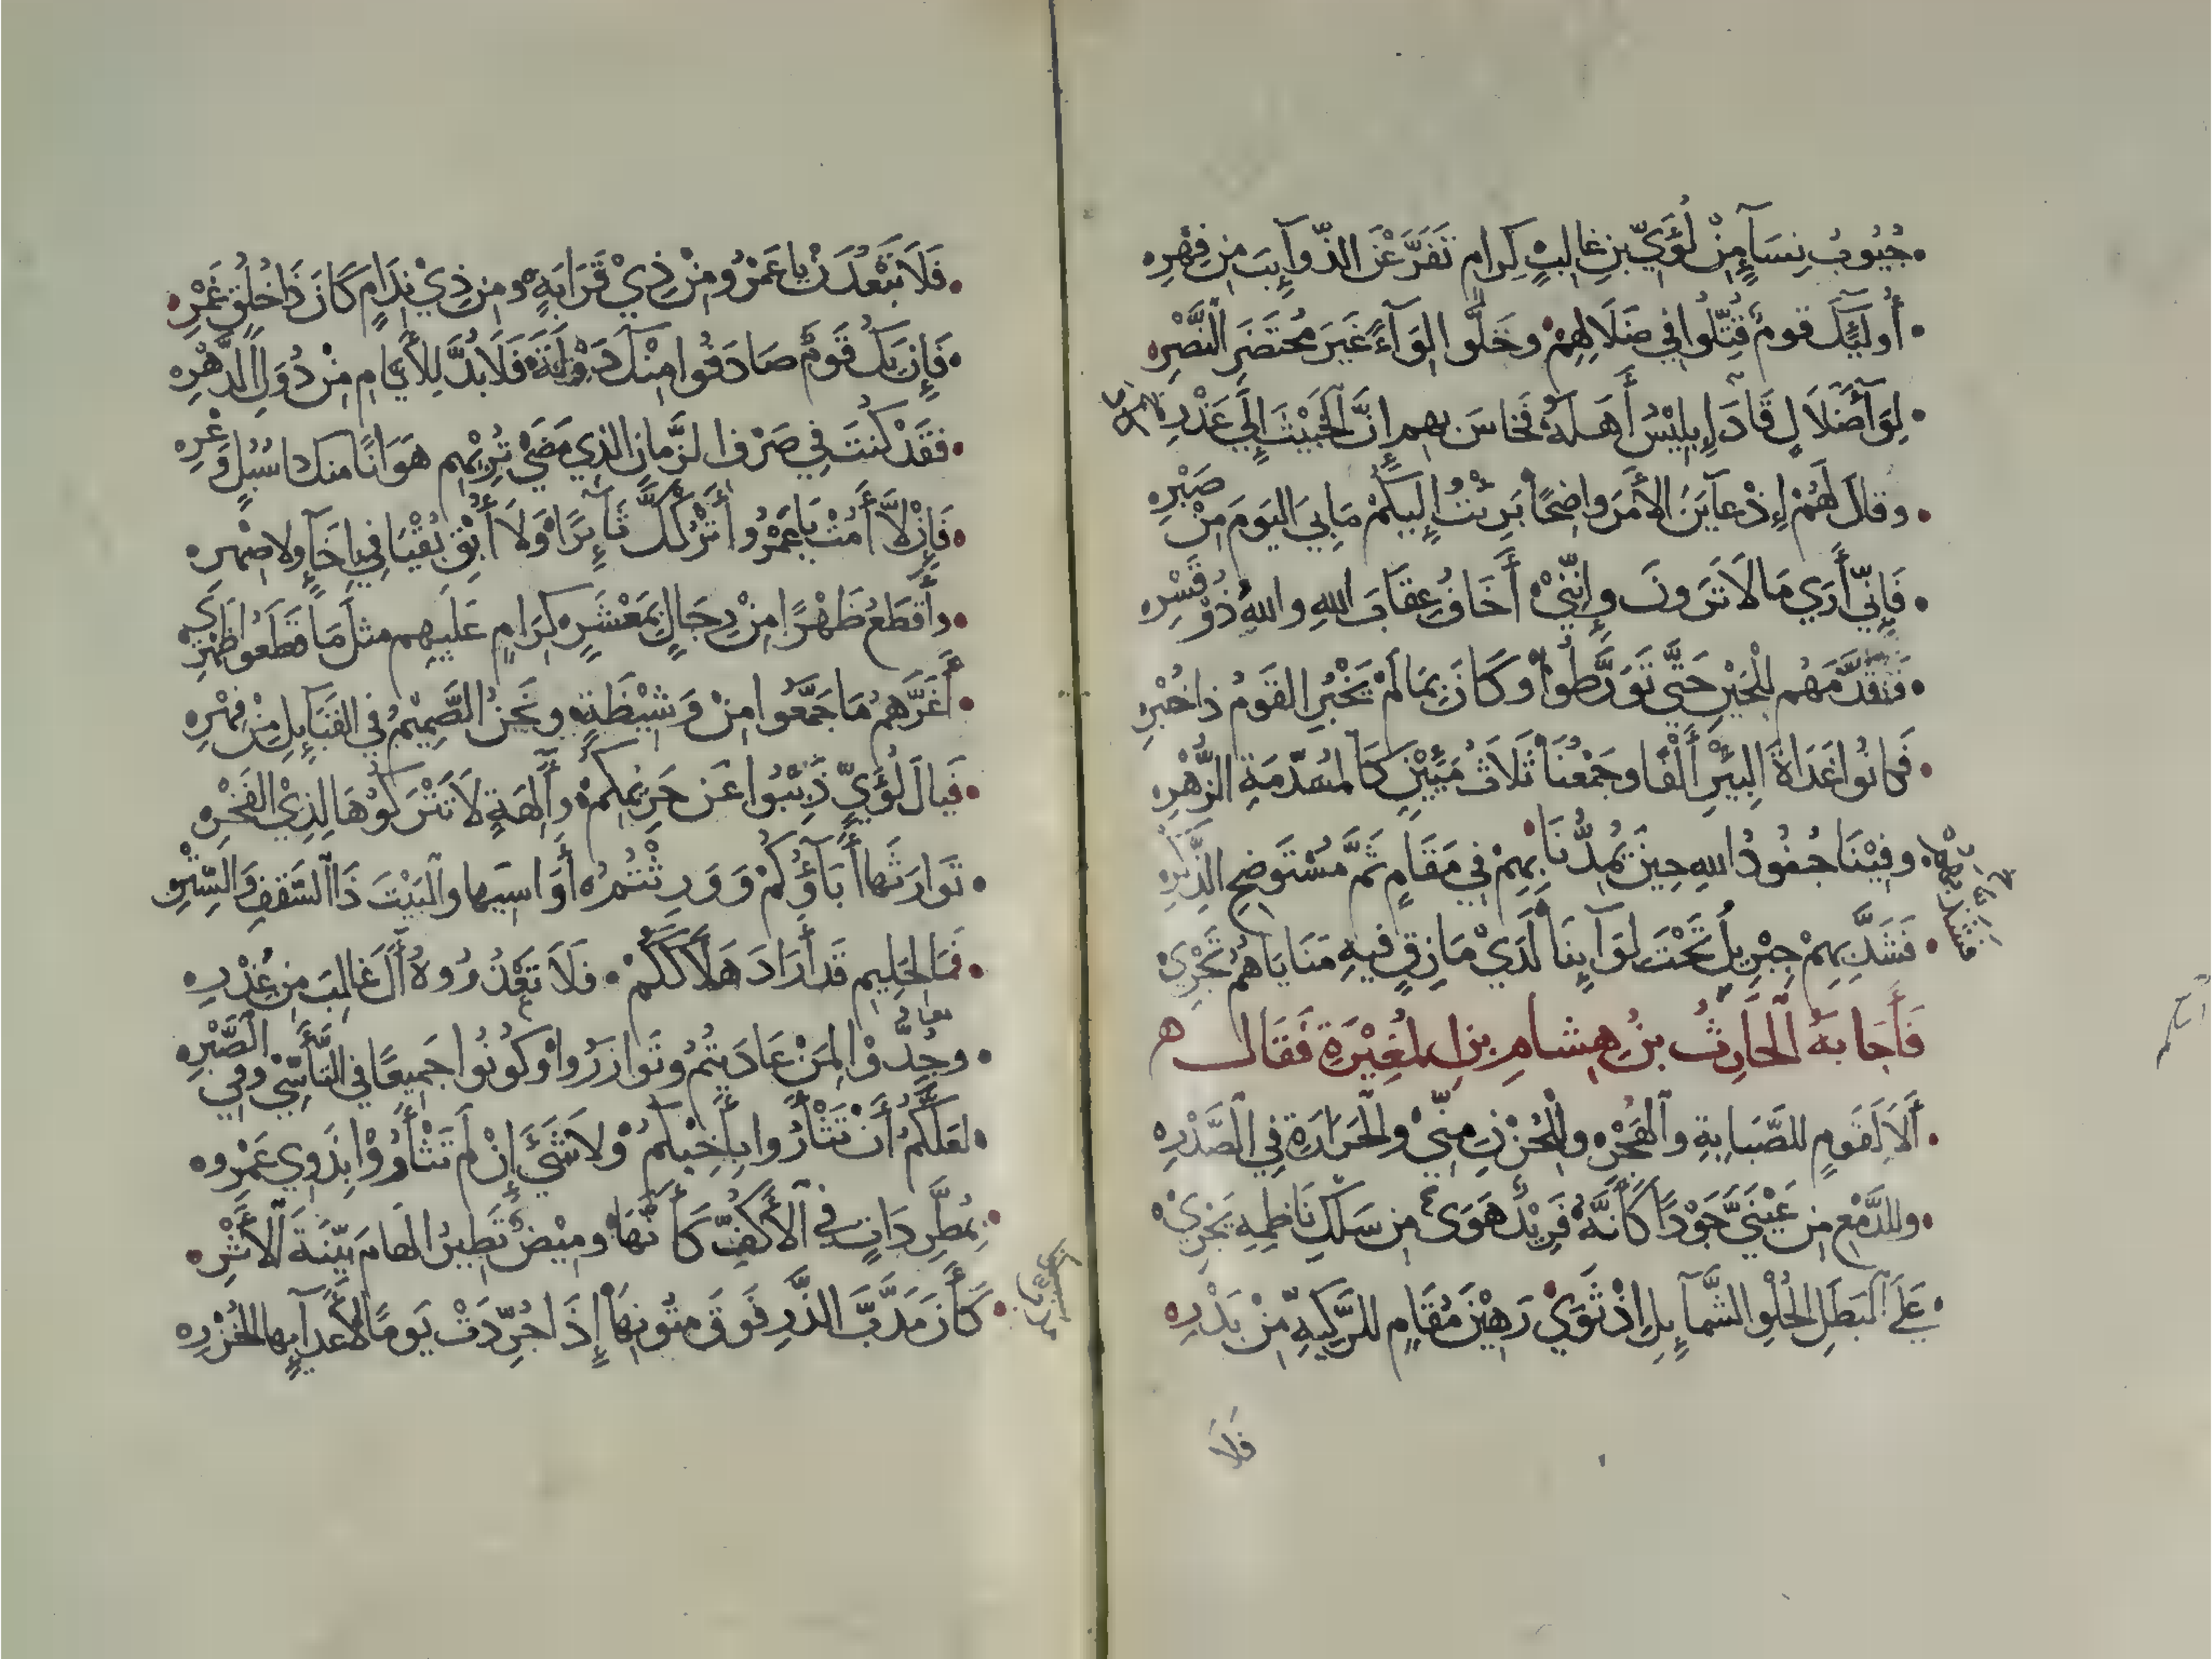 جُيُوبُ نِسَآءٍ مِنْ لُؤَيِّ بنِ غالِبٍ كِرامٍ تَفَرَّعْنَ الذَّوآيِبَ مِن فِهْرِ
أُولَيِٕكَ قومٌ قُتِّلُوا في ضَلَالِهِمْ وخَلَّوا لِوَآءً غَيرَ مُحْتَضَرِ النَّصْرِ
لِوَآءَ ضَلَالٍ قَادَ إِبلِيْسُ أَهلَهُ فَخاسَ بهم إِنَّ الخَبِيْثَ إِلَى غَدْرِ
وقالَ لَهُمْ إِذْ عآيَنَ الأَمرَ واضِحًا بَرِيْتُ إِلَيكُمْ مَا بِيَ اليَومَ مِنْ صَبْرِ
فَإِنِّي أَرَي مَا لَا تَرَونَ وإِنَّنِيْ أَخَافُ عِقَابَ اللهِ واللهُ ذُوْ قَسْرِ
فَقَدَّمَهُم لِلْحَيْنِ حَتَّى تَوَرَّطُوا وَكَانَ بِمَا لَمْ يَخْبُرِ القَومُ ذا خُبْرِ
فَكانُوا غَدَاةَ البِيْرِ أَلْفًا وجَمْعُنَا ثَلَاثُ مِيِّيْنٍ كَالمُسَدَّمَةِ الزُّهْرِ
وفِيْنَا جُنُودُ اللهِ حِينَ يُمِدُّنَا بِهِمْ في مَقَامٍ ثَمَّ مُسْتَوضِحِ الذِّكْرِ
فَشَدَّ بِهِمْ جِبْرِيلُ تَحْتَ لِوَآيِنَا لَدَيْ مَازِقٍ فيهِ مَنَايَاهُمُ تَجْرِيْ
فَأَجَابَهُ الحَارِثُ بنُ هِشَامِ بنِ المُغِيْرَةِ فَقَالَ
أَلَا لَقَومٍ للصَّبابةِ والهَجْرِ ولِلْحُزْنِ مِنِّيْ والحَرَارَةِ فِي الصَّدْرِ
ولِلدَّمْعِ مِن عَيْنَيَّ جَوْدًا كَأَنَّهُ فَرِيْدٌ هَوَى مِن سِلْكِ نَاظِمِهِ يَجْرِيْ
عَلَى البَطَلِ الحُلْوِ الشَّمآيِلِ إِذْ ثَوَيْ رَهِيْنَ مُقَامٍ لِلرَّكِيَّةِ مِنْ بَدْرِ
فلا
فَلَا تَبْعُدَنْ يا عَمْرُو مِنْ ذِيْ قَرَابَةٍ ومِن ذِيْ نِدَامٍ كَانَ ذَا خُلُقٍ غَمْرِ
فَإِن يَكُ قَومٌ صَادَفُوا مِنْكَ دَوْلَةً فَلَا بُدَّ لِلأَيَّامِ مِنْ دُوَلِ الدَّهْرِ
فقَدْ كُنتَ فِي صَرْفِ الزَّمانِ الذي مَضَى تُرِيْهِم هَوَانًا منك ذا سُبُلٍ وَعْرِ
فَإِنْ لَا أَمُتْ يَا عَمْرُو أَتْرُكْكَ ثَآيِرًا وَلَا أُبْقِ بُقْيَا فِي إِخَآءٍ ولا صِهْرِ
وأَقطَعُ ظَهْرًا مِنْ رِجَالٍ بمَعْشَرٍ كِرَامٍ عَلَيهِم مثلَ مَا قَطَعُوا ظَهْرِي
أَغَرَّهُمُ مَا جَمَّعُوا مِنْ وَشِيْظَةٍ ونَحنُ الصَّمِيْمُ في القَبَآيِلِ مِنْ فِهْرِ
فَيالَ لُؤَيٍّ ذَبِّبُوا عَن حَرِيْمِكمْ وآلِهَةٍ لَا تَتْرُكُوْهَا لِذِيْ الفَخْرِ
تَوارَثَها أَبآؤُكُمْ وَوَرِثْتُمُ أَوَاسِيَها والبَيْتَ ذَا السَّقفِ والسِّتْرِ
فَمَا لِحَلِيمٍ قَد أَرَادَ هَلَاكَكُمْ فلَا تَعْذُرُوهُ آلَ غالِبَ مِن عُذْرِ
وجِدُّوْا لِمَنْ عَادَيتُمُ وتَوازَرُوا وكُونُوا جَمِيعًا في التَّأَسِّيْ وفِي الصَّبْرِ
لعَلَّكُمُ أَن تَثْأَرُوا بِأَخِيْكُمُ ولَا شَيْءَ إِنْ لَمْ تَثْأَرُوْا بِذَوِي عَمْرِو
بمُطَّرِدَاتٍ في الأَكُفِّ كَأَنَّهَا ومِيْضٌ تُطِيرُ الهامَ بَيِّنَةَ الأَثْرِ
كَأَنَّ مَدَبَّ الذَّرِ فَوقَ مُتُونِهَا إِذَا جُرِّدَتْ يَومًا لأَعدآيِها الخُزْرِ